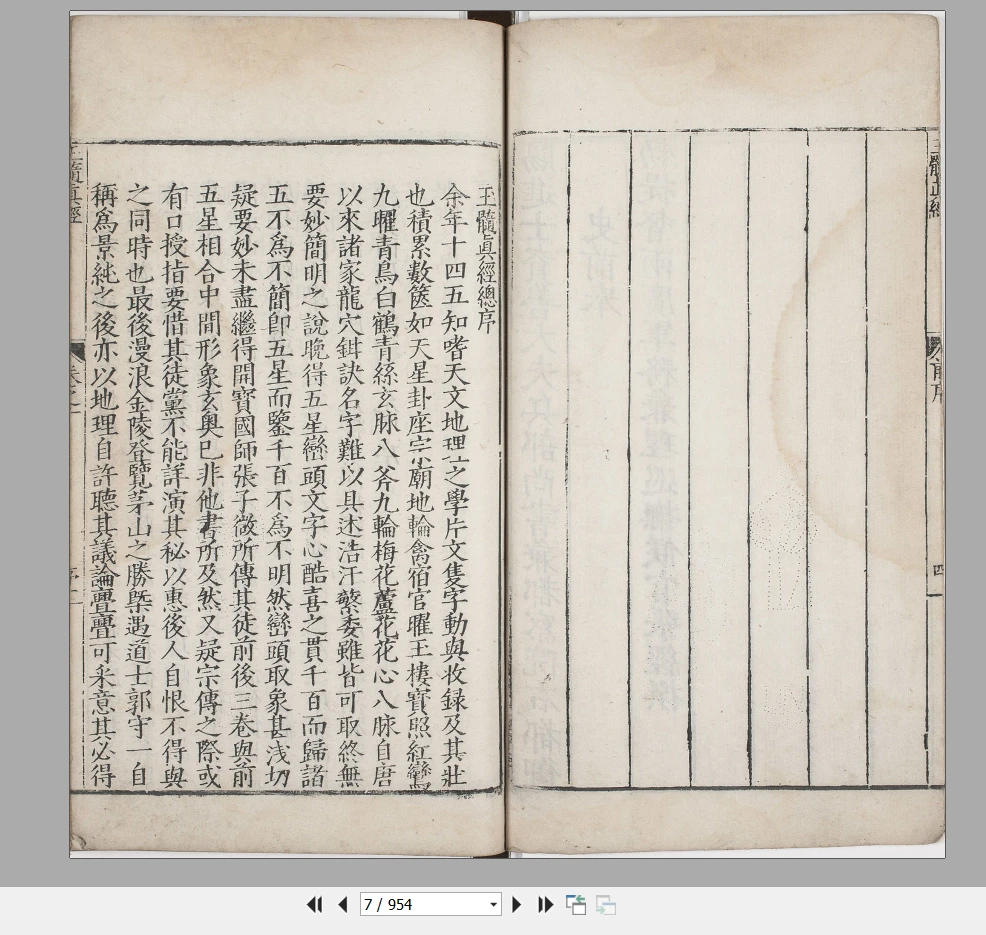 髓
前序
四
玉髓眞經總序
余年十四五知嗜天文地理之學片文隻字動與收録及其壯
也積累數篋如天星卦座宗廟地輪禽宿官曜玉樓寶照紅鸞
九曜青鳥白鶴青絲玄脉八斧九輪梅花蘆花花心八脉自唐
以來諸家龍穴鉗訣名字難以具述浩汗縈委雖皆可取終無
要妙簡明之說晚得五星巒頭文字心酷喜之貫千百而歸諸
五不爲不簡卽五星而鑒千百不爲不明然巒頭取象甚浅切
疑要妙未盡繼得開寶國師張子微所傳其徒前後三卷與前
五星相合中間形象玄奥巳非他書所及然又疑宗傳之際或
有口授指要惜其徒黨不能詳演其秘以惠後人自恨不得與
之同時也最後漫浪金陵登覽茅山之勝槩遇道士郭守一自
稱爲景純之後亦以地理自許聽其議論亹亹可采意其必得
髓眞經
7 / 954